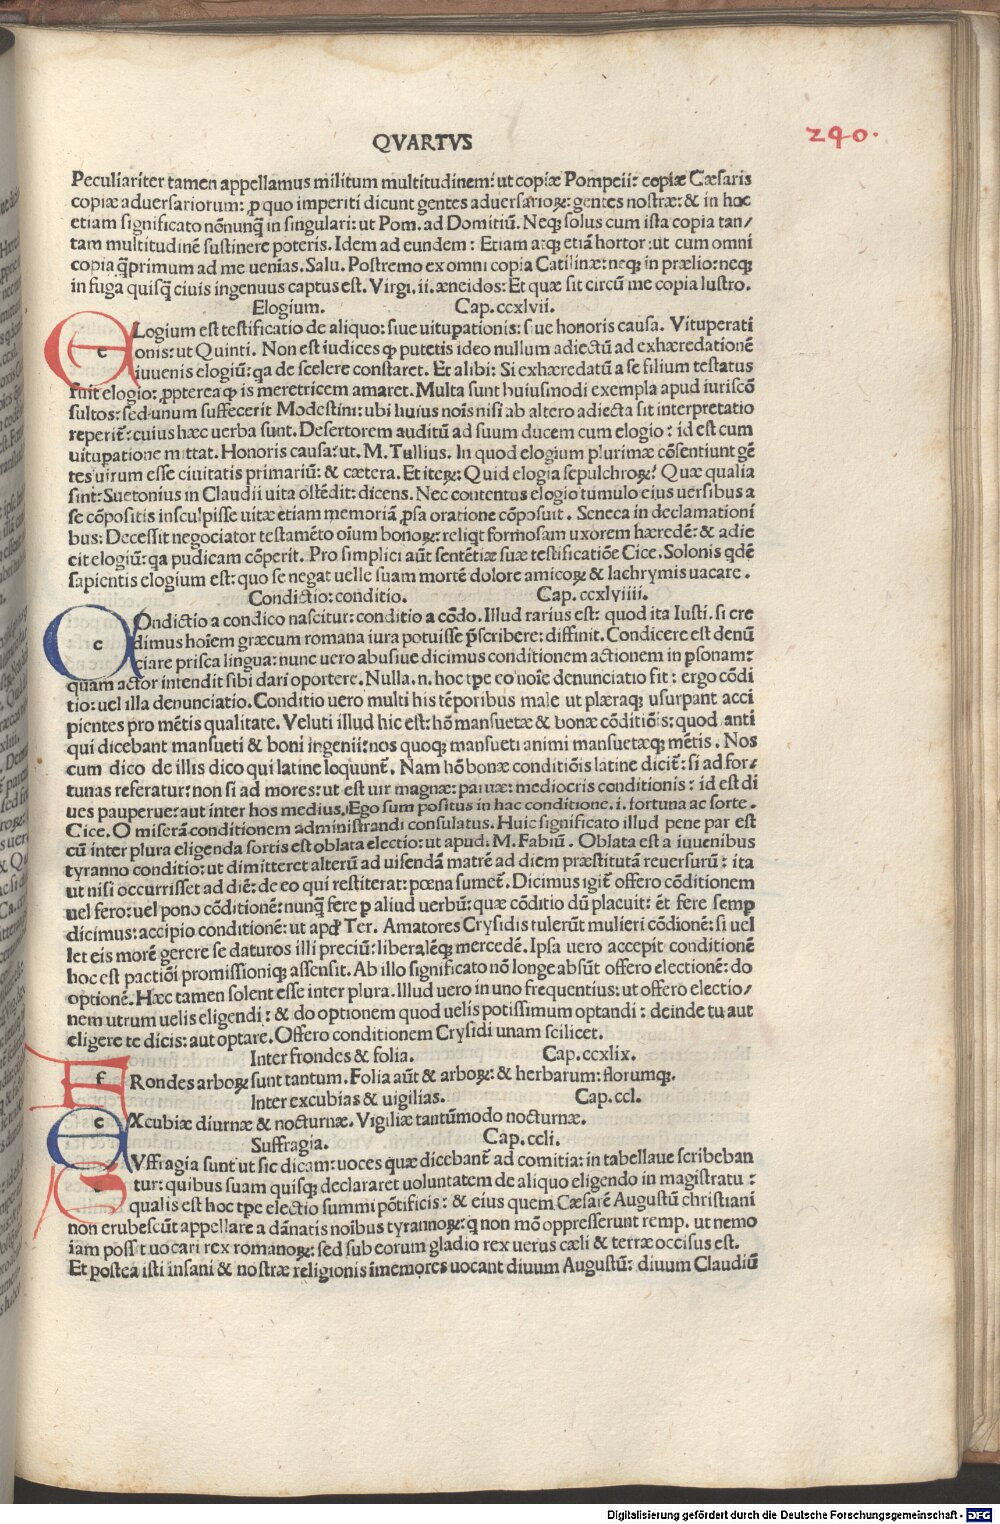 QVARTVS
240.
Peculiariter tamen appellamus militum multitudinem: ut copiæ Pompeii: copiæ Cæsaris
copiæ aduersariorum: ꝓ quo imperiti dicunt gentes aduersarioꝝ: gentes nostræ: & in hoc
etiam significato nōnunꝗ̄ in singulari: ut Pom. ad Domitiū. Neqꝫ solus cum ista copia tan/
tam multitudinē sustinere poteris. Idem ad eundem: Etiam atqꝫ etiā hortor: ut cum omni
copia ꝗ̄primum ad me uenias. Salu. Postremo ex omni copia Catilinæ: neqꝫ in prælio: neqꝫ
in fuga quisꝗ̄ ciuis ingenuus captus est. Virgi. ii. æneidos: Et quæ sit circū me copia lustro.
Elogium. Cap. ccxlvii.
e Logium est testificatio de aliquo: siue uitupationis: siue honoris causa. Vituperati
onis: ut Quinti. Non est iudices ꝙ putetis ideo nullum adiectū ad exhæredationē
iuuenis elogiū: qa de scelere constaret. Et alibi: Si exhæredatū a se filium testatus
fuit elogio: ꝓpterea ꝙ is meretricem amaret. Multa sunt huiusmodi exempla apud iuriscō
sultos: sed unum suffecerit Modestini: ubi huius noīs nisi ab altero adiecta sit interpretatio
reperit̄: cuius hæc uerba sunt. Desertorem auditū ad suum ducem cum elogio: id est cum
uitupatione mittat. Honoris causa: ut. M. Tullius. In quod elogium plurimæ cōsentiunt gē
tes uirum esse ciuitatis primariū: & cætera. Et iteꝝ: Quid elogia sepulchroꝝ? Quæ qualia
sint: Suetonius in Claudii uita ostēdit: dicens. Nec contentus elogio tumulo eius uersibus a
se cōpositis insculpisse uitæ etiam memoriā ꝓsa oratione cōposuit. Seneca in declamationi
bus: Decessit negociator testamēto oīum bonoꝝ: reliqt formosam uxorem hæredē: & adie
cit elogiū: qa pudicam cōperit. Pro simplici aūt sentētiæ suæ testificatiōe Cice. Solonis qdē
sapientis elogium est: quo se negat uelle suam mortē dolore amicoꝝ & lachrymis uacare.
Condictio: conditio. Cap. ccxlviiii.
c Ondictio a condico nascitur: conditio a cōdo. Illud rarius est: quod ita Iusti. si cre
dimus hoīem græcum romana iura potuisse p̄scribere: diffinit. Condicere est denū
ciare prisca lingua: nunc uero abusiue dicimus conditionem actionem in psonam:
quam actor intendit sibi dari oportere. Nulla .n. hoc tpe eo noīe denunciatio fit: ergo cōdi
tio: uel illa denunciatio. Conditio uero multi his tēporibus male ut plæraqꝫ usurpant acci
pientes pro mētis qualitate. Veluti illud hic est: hō mansuetæ & bonæ cōditiōis: quod anti
qui dicebant mansueti & boni ingenii: nos quoqꝫ mansueti animi mansuetæqꝫ mētis. Nos
cum dico de illis dico qui latine loquunt̄. Nam hō bonæ conditiōis latine dicit̄: si ad for/
tunas referatur: non si ad mores: ut est uir magnæ: paruæ: mediocris conditionis: id est di
ues pauperue: aut inter hos medius. Ego sum positus in hac conditione .i. fortuna ac sorte.
Cice. O miserā conditionem administrandi consulatus. Huic significato illud pene par est
cū inter plura eligenda sortis est oblata electio: ut apud. M. Fabiū. Oblata est a iuuenibus
tyranno conditio: ut dimitteret alterū ad uisendā matrē ad diem præstitutā reuersurū: ita
ut nisi occurrisset ad diē: de eo qui restiterat: pœna sumet̄. Dicimus igit̄ offero cōditionem
uel fero: uel pono cōditionē: nunꝗ̄ fere ꝑ aliud uerbū: quæ cōditio dū placuit: ēt fere semꝑ
dicimus: accipio conditionē: ut apd' Ter. Amatores Crysidis tulerūt mulieri cōdionē: si uel
let eis morē gerere se daturos illi preciū: liberalēqꝫ mercedē. Ipsa uero accepit conditionē
hoc est pactiōi promissioniqꝫ assensit. Ab illo significato nō longe absūt offero electionē: do
optionē. Hæc tamen solent esse inter plura. Illud uero in uno frequentius: ut offero electio/
nem utrum uelis eligendi: & do optionem quod uelis potissimum optandi: deinde tu aut
eligere te dicis: aut optare. Offero conditionem Crysidi unam scilicet.
Inter frondes & folia. Cap. ccxlix.
f Rondes arboꝝ sunt tantum. Folia aūt & arboꝝ: & herbarum: florumqꝫ.
Inter excubias & uigilias. Cap. ccl.
e Xcubiæ diurnæ & nocturnæ. Vigiliæ tantūmodo nocturnæ.
Suffragia. Cap. ccli.
s Vffragia sunt ut sic dicam: uoces quæ dicebant̄ ad comitia: in tabellaue scribeban
tur: quibus suam quisqꝫ declararet uoluntatem de aliquo eligendo in magistratu:
qualis est hoc tpe electio summi pōtificis: & eius quem Cæsarē Augustū christiani
non erubescūt appellare a dānatis noībus tyrannoꝝ: q non mō oppresserunt remp. ut nemo
iam possit uocari rex romanoꝝ: sed sub eorum gladio rex uerus cæli & terræ occisus est.
Et postea isti insani & nostræ religionis īmemores uocant diuum Augustū: diuum Claudiū
Digitalisierung gefördert durch die Deutsche Forschungsgemeinschaft - DFG